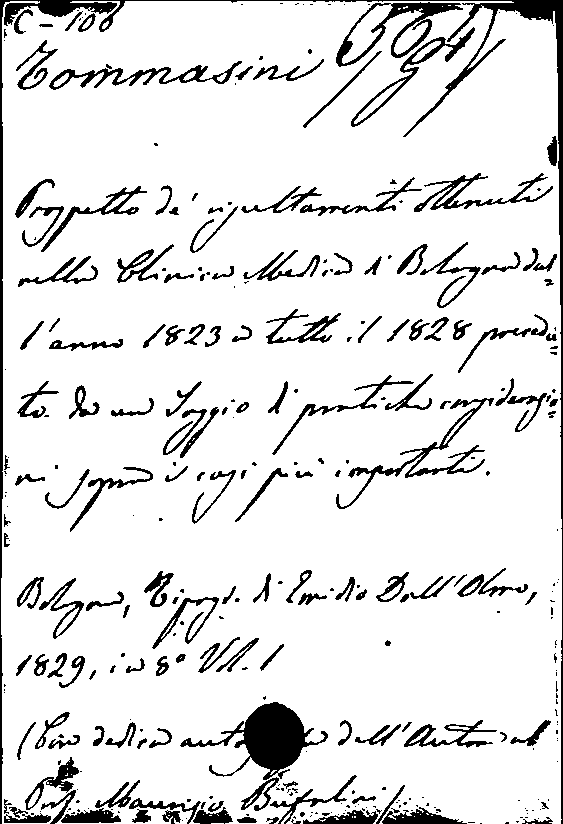 C - 106
Tommasini
Prospetto de' risultamenti ottenuti
nella Clinica Medica di Bologna dal=
l'anno 1823 a tutto il 1828 precedu=
to da un Saggio di pratiche considerazio=
ni sopra i casi più importanti.
Bologna, Tipogr. di Emidio Dall'Olmo,
1829, in 8° Vol. 1
(Con dedica dell'Autore al
Prof. Maurizio Bufalini)